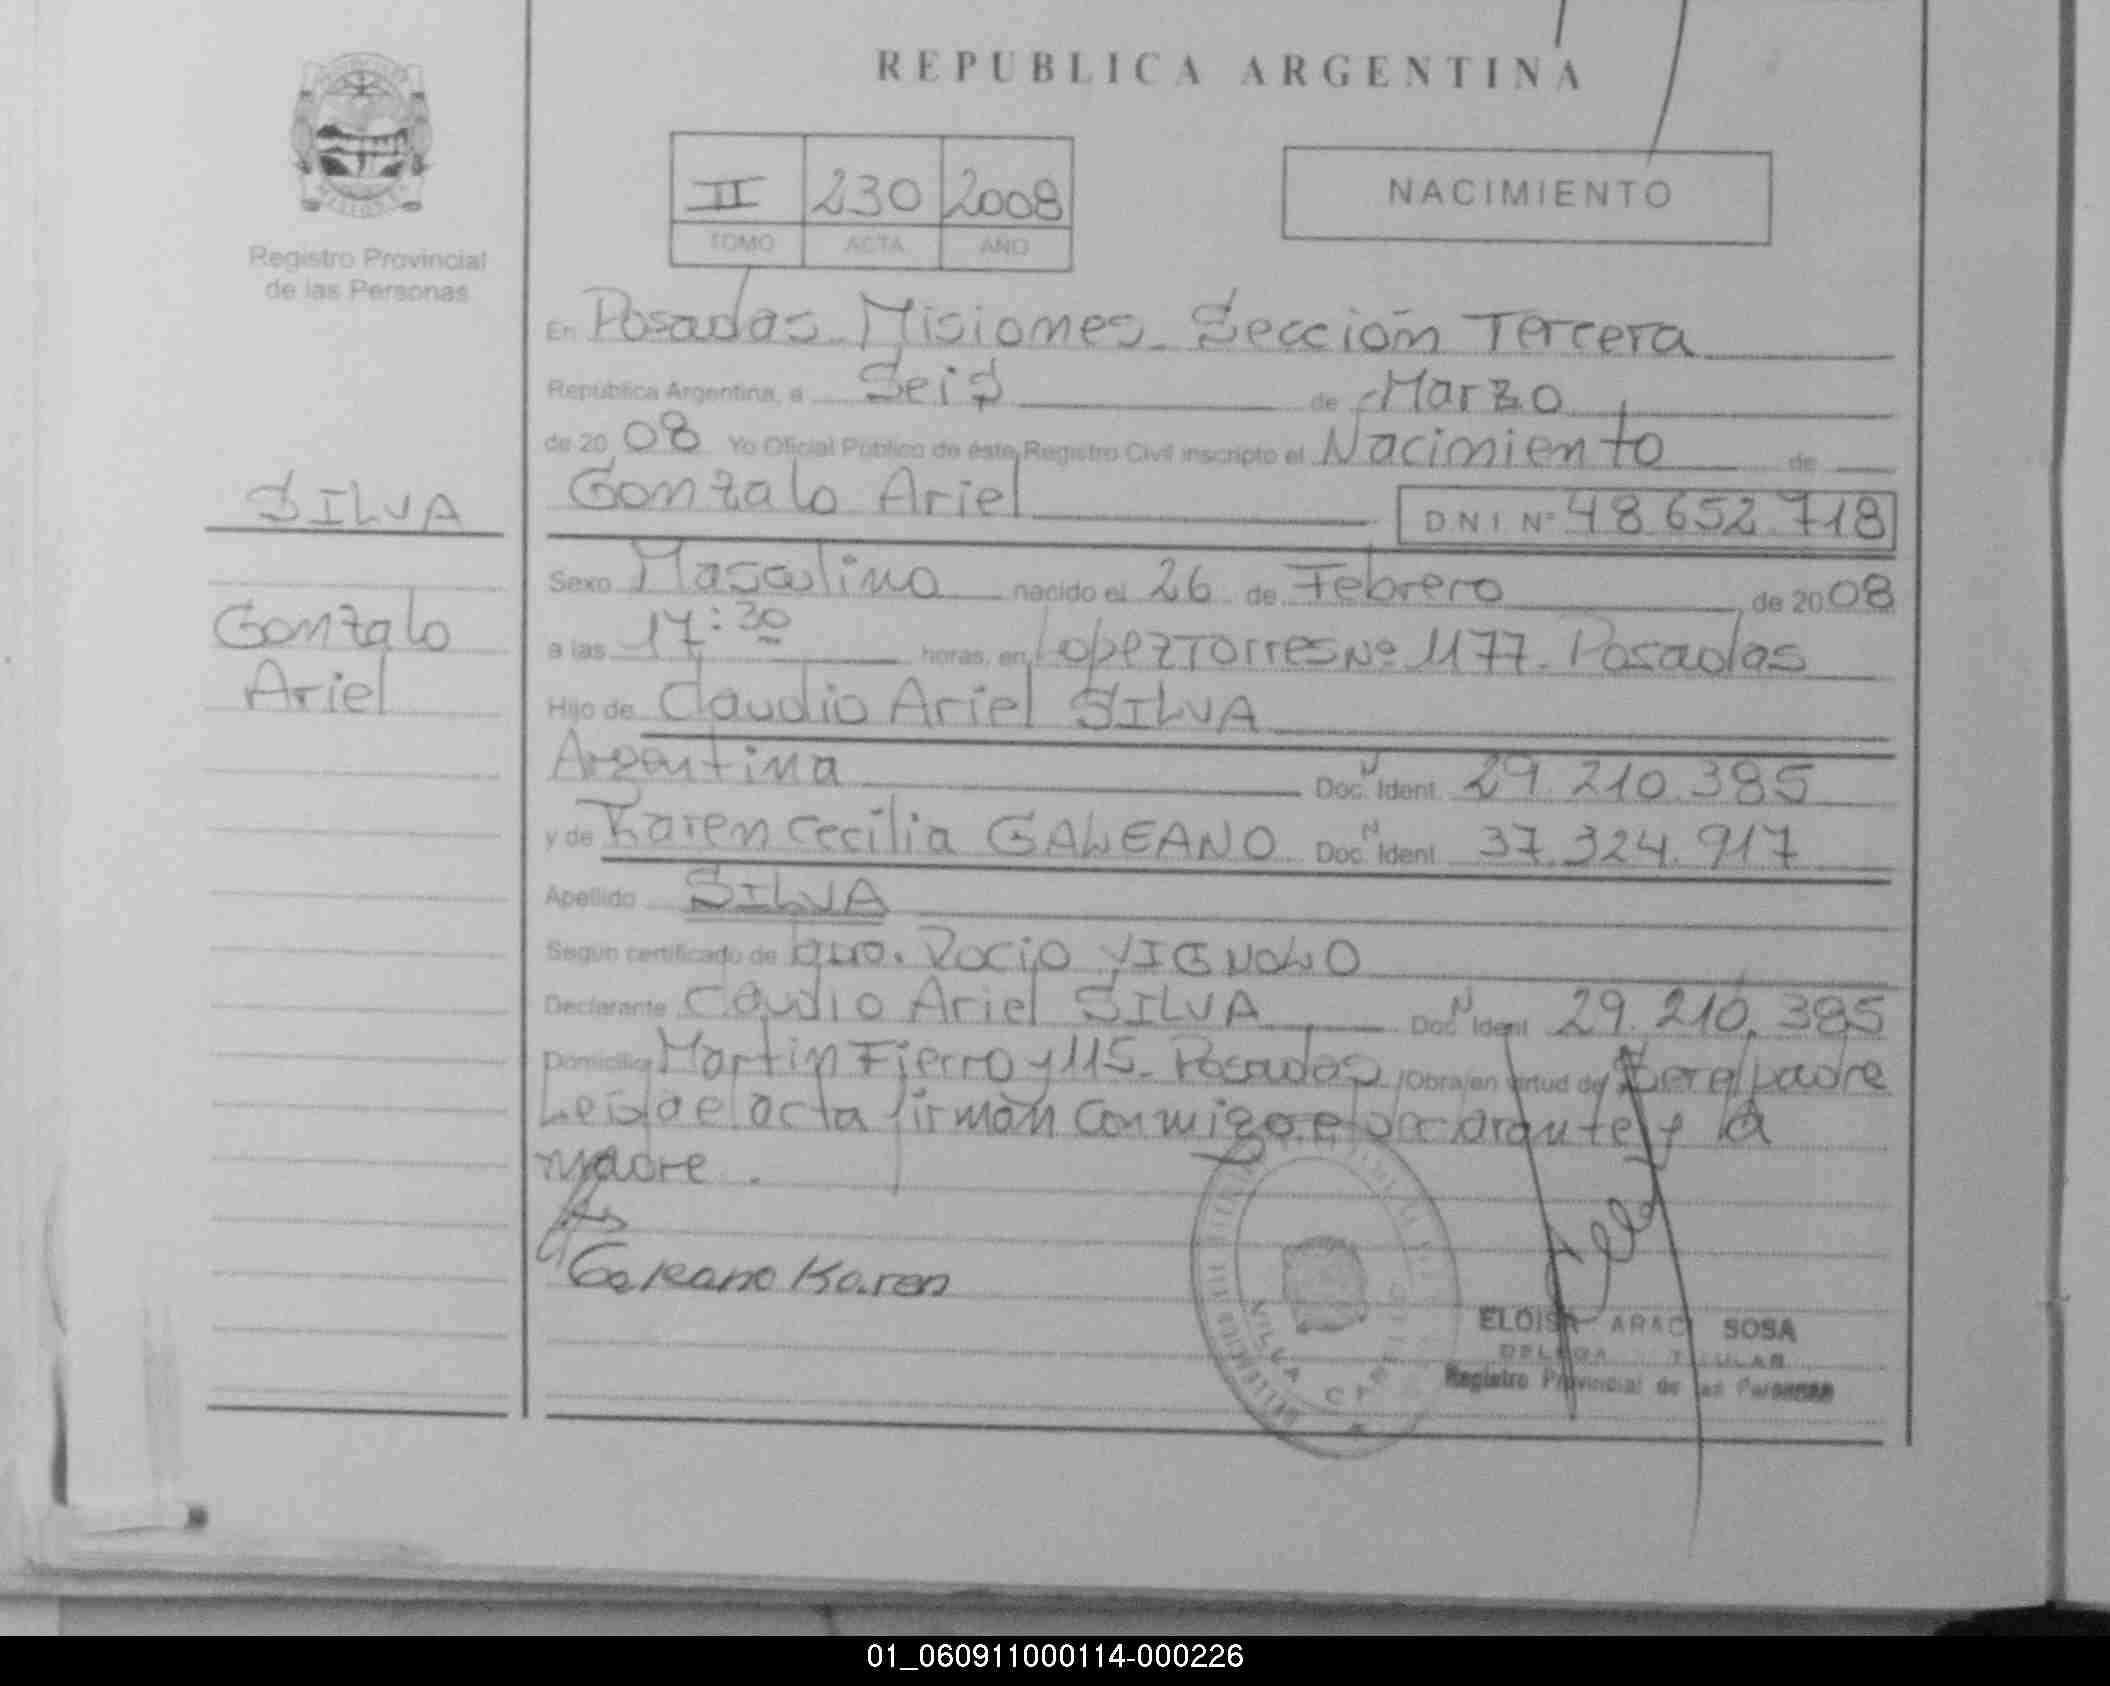 REPUBLICA ARGENTINA
II 230 2008
TOMO ACTA AÑO
NACIMIENTO
Registro Provincial
de las Personas
SILVA
Gonzalo
Ariel
En Posadas Misiones Sección Tercera
República Argentina, a Seis de Marzo
de 2008 Yo Oficial Público de éste Registro Civil inscripto el Nacimiento de
Gonzalo Ariel D.N.I. Nº 48 652 718
Sexo Masculino nacido el 26 de Febrero de 2008
a las 17:30 horas, en Lopez Torres Nº 1177. Posadas
Hijo de Claudio Ariel SILVA
Argentina Doc. Ident. 29.210.385
y de Karen Cecilia GALEANO Doc. Ident. 37.324.917
Apellido SILVA
Según certificado de Rocio VIGNOLO
Declarante Claudio Ariel SILVA Doc. Ident 29.210.385
Domicilio Martin Fierro y 115. Posadas /Obra/en virtud de/ Ser el padre
Leida el acta firman conmigo el declarante y la
madre.
Galeano Karen
ELOISA ARACI SOSA
DELEGA TITULAR
Registro Provincial de las Personas
VILLA CABELLO
01_060911000114-000226